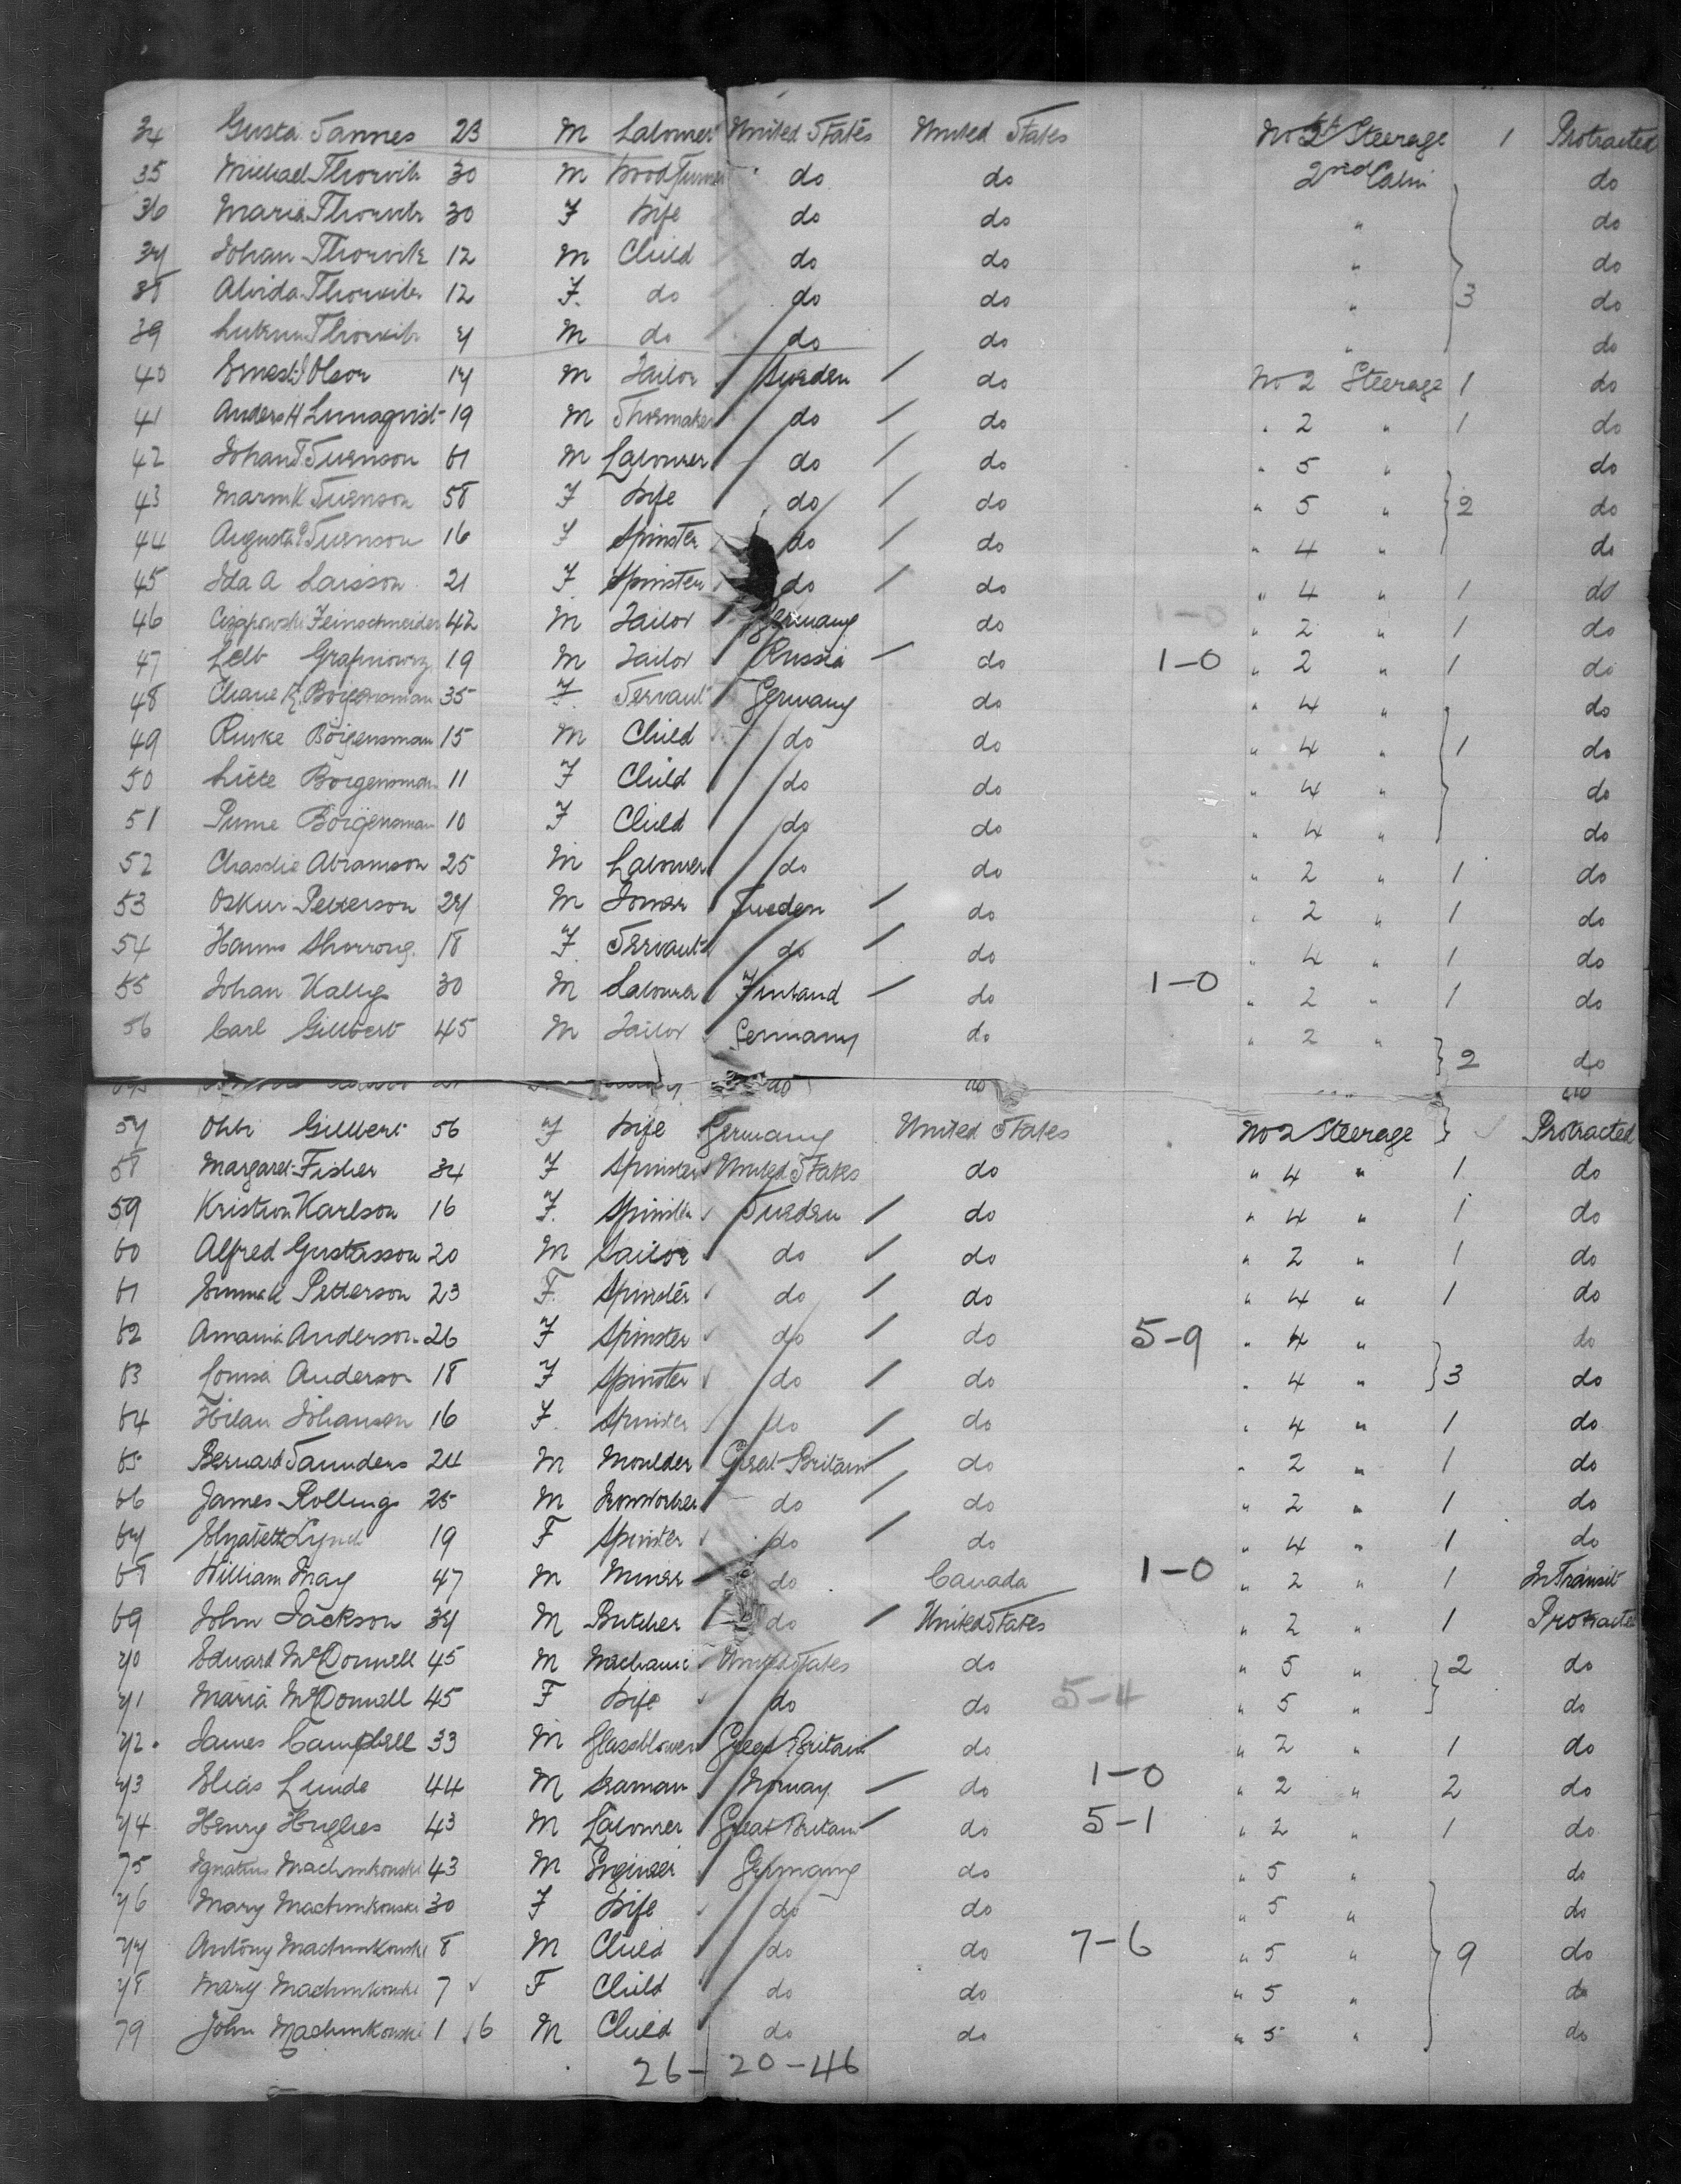 34 Gusta Sannes 23 M Labourer United States United States No 2 Steerage 1 Protracted
35 Michael Thorvik 30 M Wood Turner do do 2nd Cabin do
36 Maria Thorvik 30 F Wife do do " do
37 Johan Thorvik 12 M Child do do " do
38 Alvida Thorvik 12 F. do do do " 3 do
39 Thorvik 7 M do do do " do
40 Ernest J Olson 17 M Tailor Sweden do No 2 Steerage 1 do
41 Anders H Lunnqvist 19 M Shoemaker do do " 2 " 1 do
42 Johan T Svenson 61 M Labourer do do " 5 " do
43 K Svenson 58 F Wife do do " 5 " 2 do
44 Augusta Svenson 16 F Spinster do do " 4 " do
45 Ida A Larsson 21 F. Spinster do do " 4 " 1 do
46 Feinschneider 42 M Tailor Germany do 1-0 " 2 " 1 do
47 Leib 19 M Tailor Russia do 1-0 " 2 " 1 do
48 Chane R. Boigensman 35 F. Servant Germany do " 4 " do
49 Riwke Boigensman 15 M Child do do " 4 " 1 do
50 Litte Boigensman 11 F Child do do " 4 " do
51 Boigensman 10 F Child do do " 4 " do
52 Abramson 25 M Labourer do do " 2 " 1 do
53 Oskur Petterson 27 M Sweden do " 2 " 1 do
54 18 F. Servant do do " 4 " 1 do
55 Johan 30 M Labourer Finland do 1-0 " 2 " 1 do
56 Carl Gillbert 45 M Tailor Germany do " 2 " 2 do
do do do
57 Gillbert 56 F Wife Germany United States No 2 Steerage Protracted
58 Margaret Fisher 34 F Spinster United States do " 4 " 1 do
59 Kristion Karlson 16 F. Spinster Sweden do " 4 " 1 do
60 Alfred Gustasson 20 M Sailor do do " 2 " 1 do
61 Petterson 23 F. Spinster do do " 4 " 1 do
62 Amania Anderson 26 F Spinster do do 5-9 " 4 " do
63 Louisa Anderson 18 F Spinster do do " 4 " 3 do
64 Johanson 16 F. Spinster do do " 4 " 1 do
65 Bernard Saunders 24 M Moulder Great Britain do " 2 " 1 do
66 James Rollings 25 M Ironworker do do " 2 " 1 do
67 Elizabeth Lynch 19 F Spinster do do " 4 " 1 do
68 William May 47 M Miner do Canada 1-0 " 2 " 1 In Transit
69 John Jackson 37 M Butcher do United States " 2 " 1 Protracted
70 Edward McDonnell 45 M Mechanic United States do " 5 " 2 do
71 Maria McDonnell 45 F Wife do do 5-4 " 5 " do
72 James Campbell 33 M Glassblower Great Britain do " 2 " 1 do
73 Elias Lunde 44 M Seaman Norway do 1-0 " 2 " 2 do
74 Henry Hughes 43 M Labourer Great Britain do 5-1 " 2 " 1 do
75 Ignatius Machinkowski 43 M Engineer Germany do " 5 " do
76 Mary Machinkowski 30 F Wife do do " 5 " do
77 Antony Machinkowski 8 M Child do do 7-6 " 5 " 9 do
78 Mary Machinkowski 7 F Child do do " 5 " do
79 John Machinkowski 1 6 M Child do do " 5 " do
26-20-46